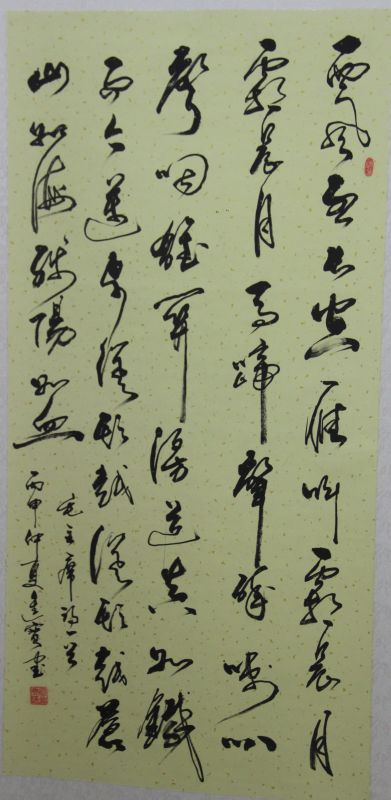 西風烈長空雁叫霜晨月
霜晨月馬蹄聲碎喇叭
聲咽雄關漫道真如鐵
而今邁步從頭越從頭越蒼
山如海殘陽如血
毛主席詞一首
丙申仲夏寶書